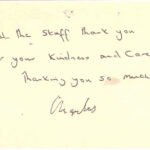 the staff thank you
your Kindness and Care
Thanking you so much
Charles